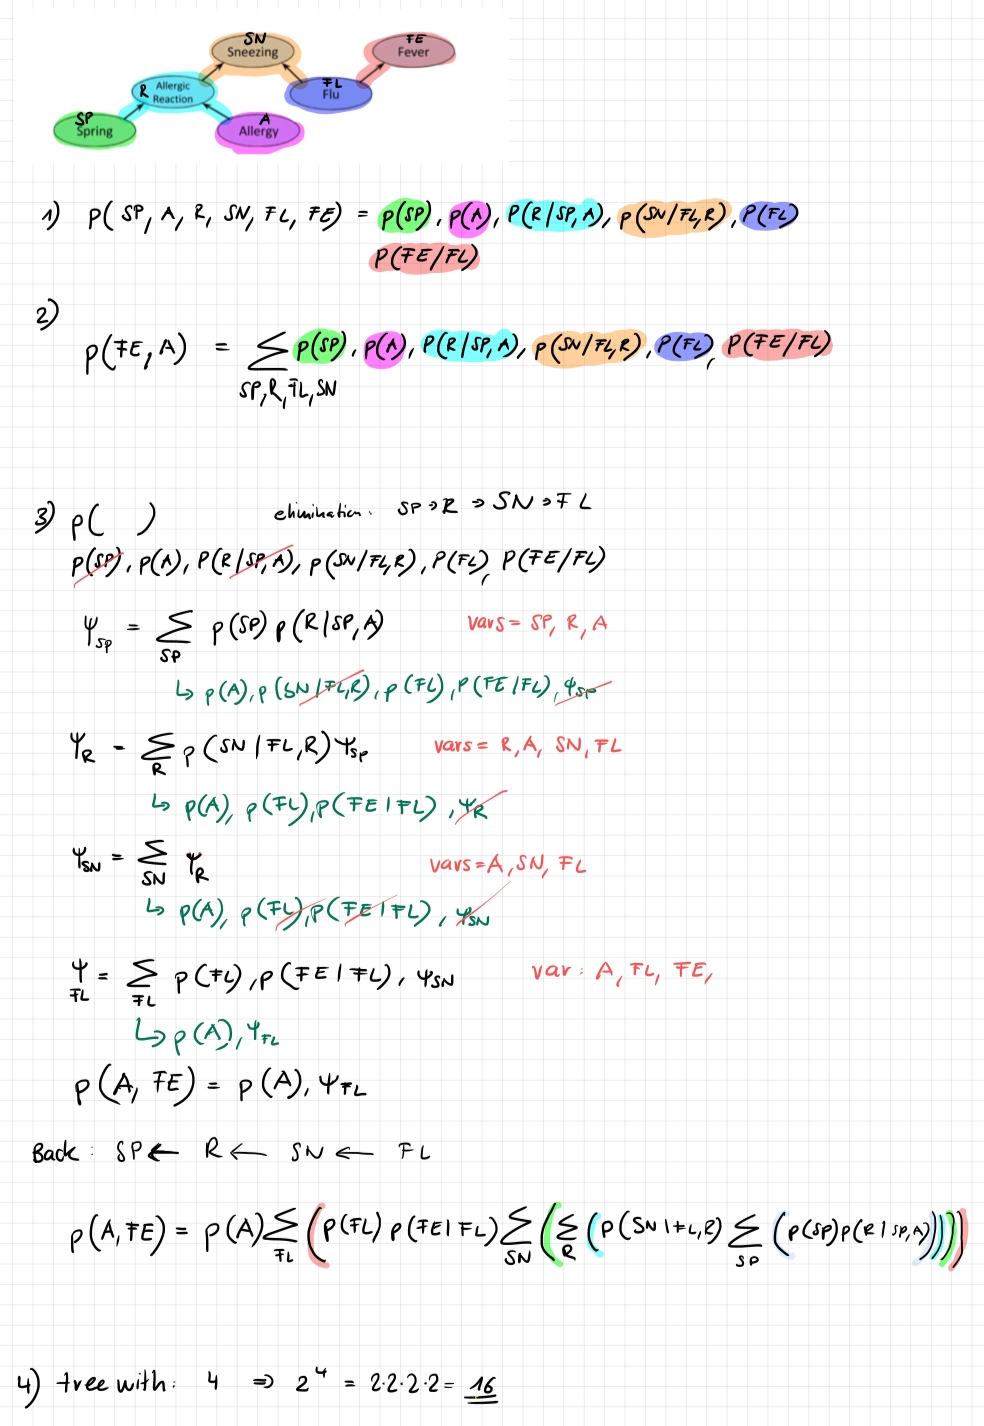 SN
Sneezing
FE
Fever
R Allergic
Reaction
FL
Flu
SP
Spring
A
Allergy
1) P( SP, A, R, SN, FL, FE) = p(SP), p(A), P(R/SP, A), p(SN/FL,R), P(FL)
P(FE/FL)
2)
p(FE, A) = ∑ p(SP), p(A), P(R/SP, A), p(SN/FL,R), P(FL), P(FE/FL)
SP, R, FL, SN
3) p( ) elimination: SP → R → SN → FL
p(SP), p(A), P(R/SP, A), p(SN/FL,R), P(FL), P(FE/FL)
Ψ_SP = ∑_SP p(SP) p(R|SP, A) vars = SP, R, A
↳ p(A), p(SN/FL,R), p(FL), P(FE|FL), Ψ_SP
Ψ_R = ∑_R p(SN|FL,R) Ψ_SP vars = R, A, SN, FL
↳ p(A), p(FL), p(FE|FL), Ψ_R
Ψ_SN = ∑_SN Ψ_R vars = A, SN, FL
↳ p(A), p(FL), p(FE|FL), Ψ_SN
Ψ_FL = ∑_FL p(FL), p(FE|FL), Ψ_SN var: A, FL, FE,
↳ p(A), Ψ_FL
p(A, FE) = p(A), Ψ_FL
Back: SP ← R ← SN ← FL
p(A, FE) = p(A) ∑_FL (p(FL) p(FE|FL) ∑_SN (∑_R (p(SN|FL,R) ∑_SP (p(SP)p(R|SP,A)))))
4) tree with: 4 ⇒ 2^4 = 2·2·2·2 = 16